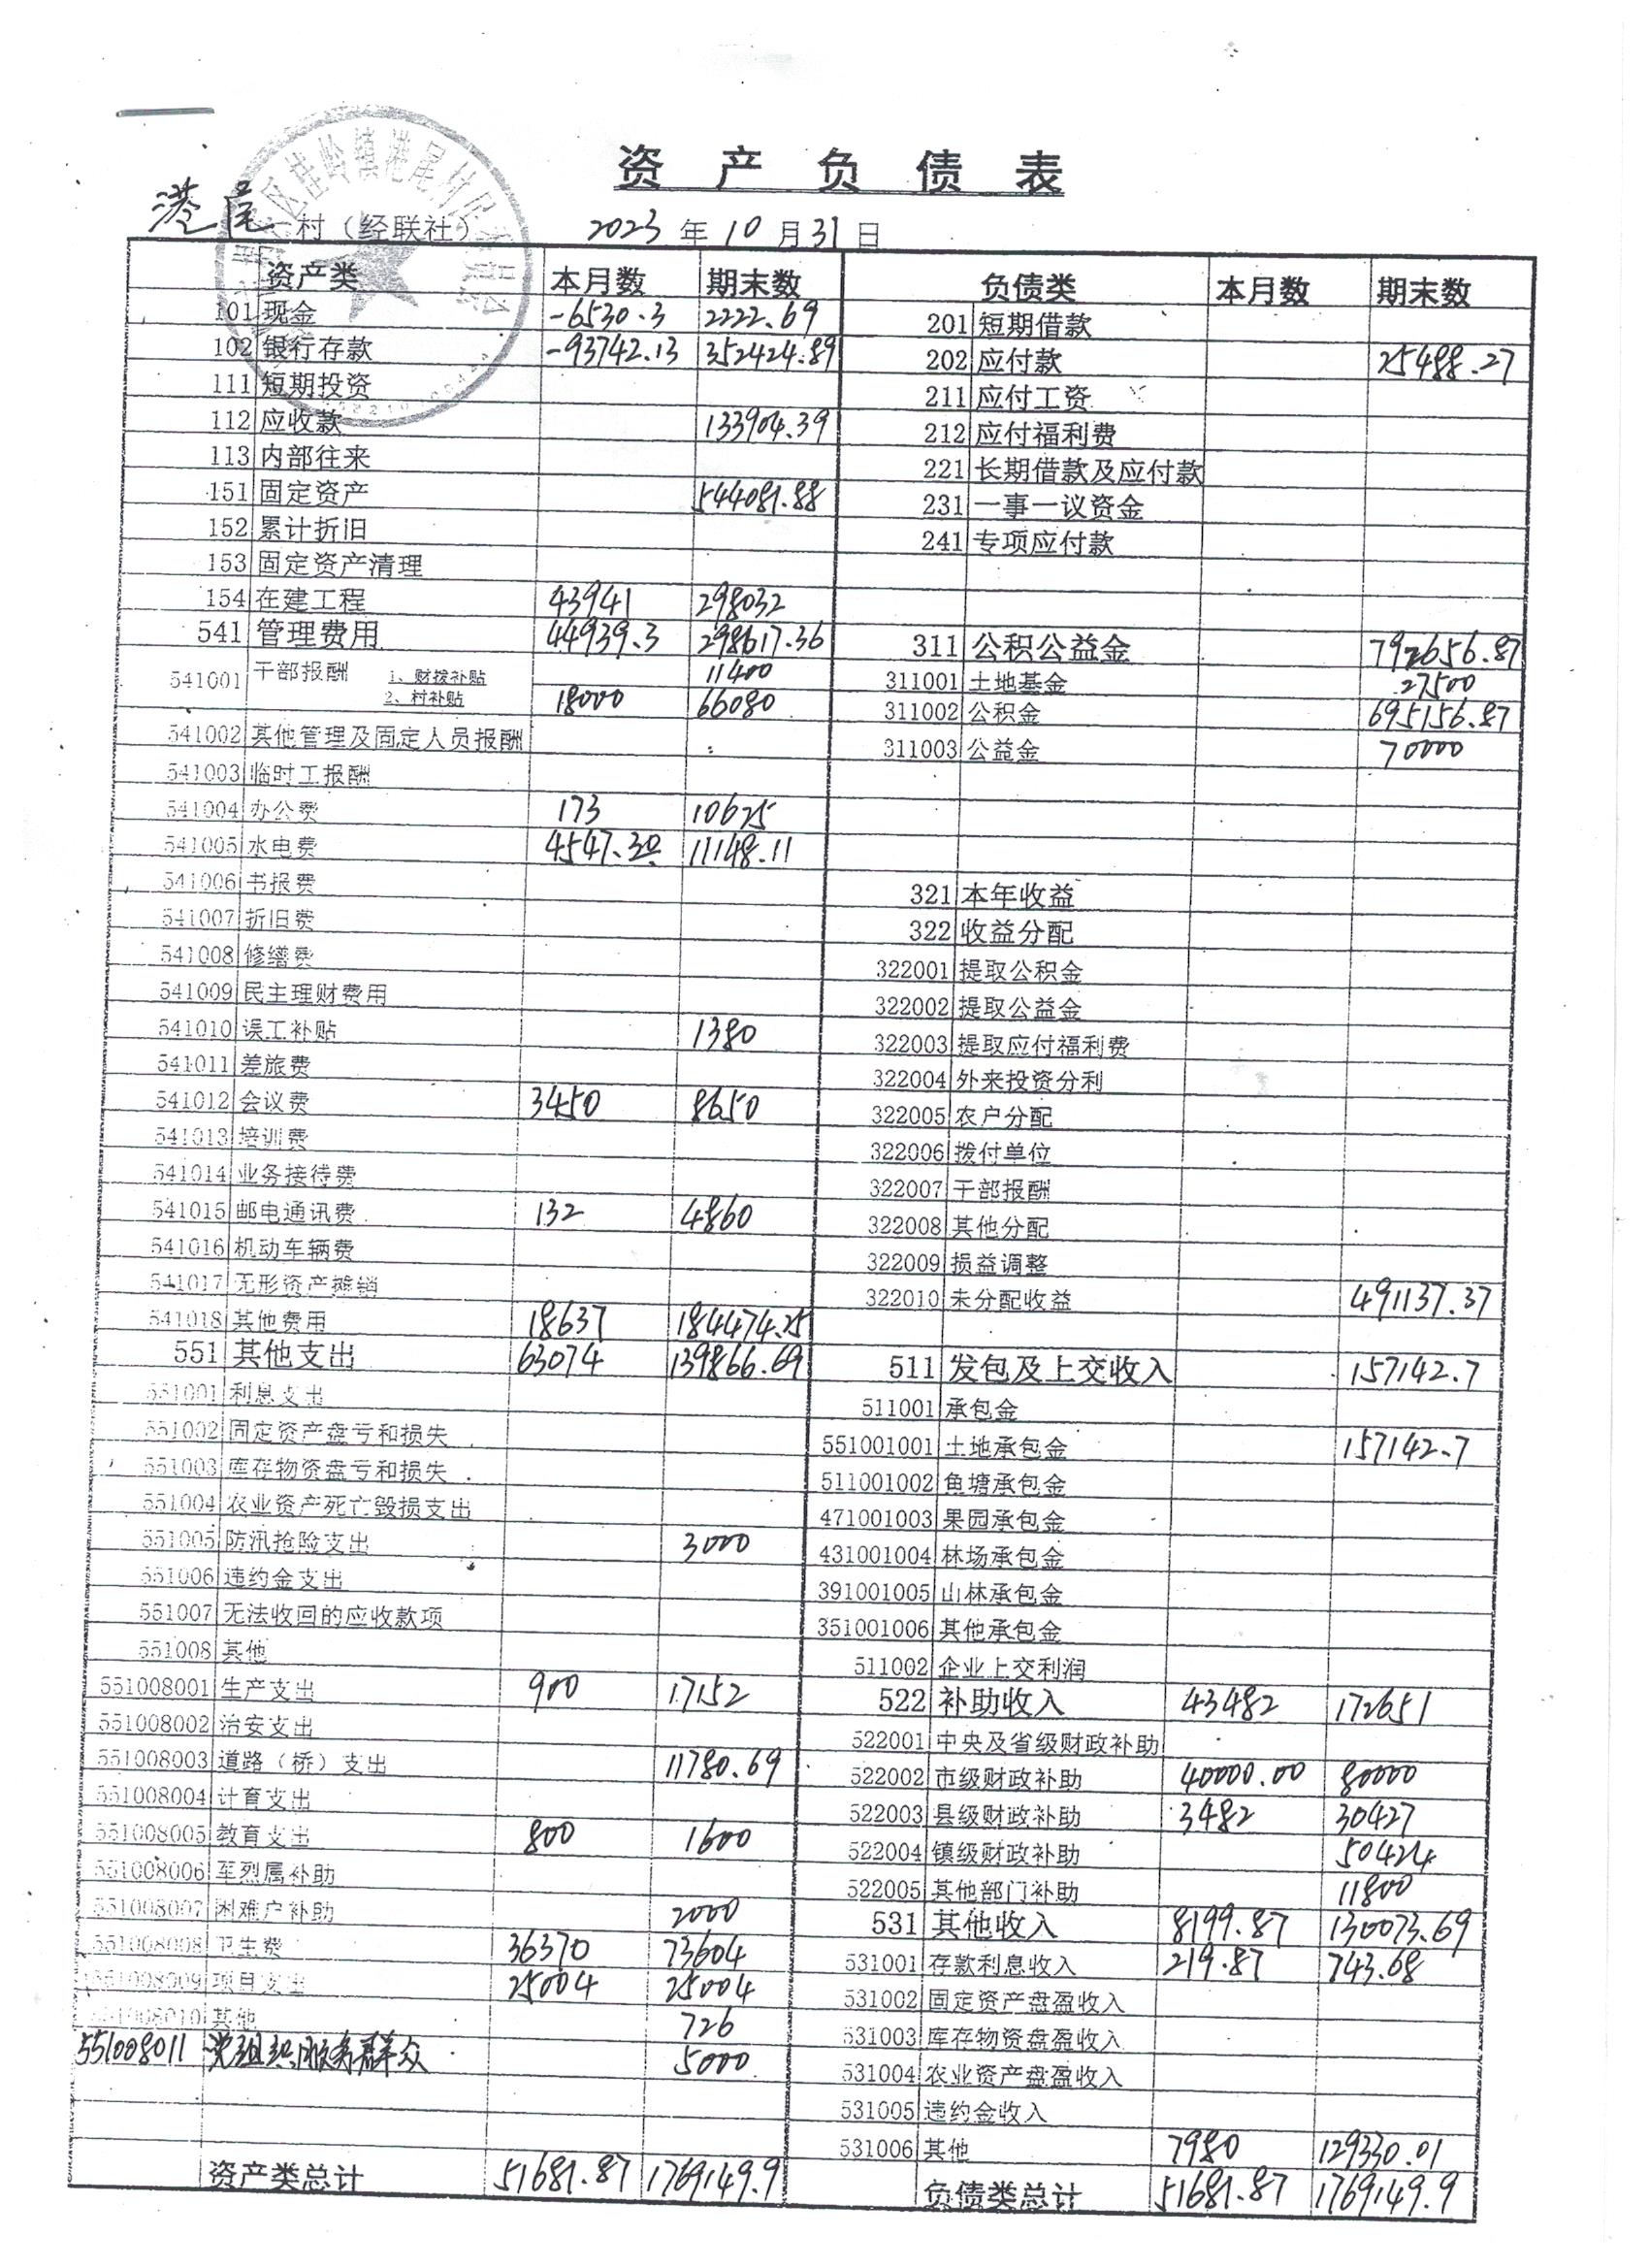 资产负债表
港尾 村（经联社） 2023 年 10 月 31 日
资产类 本月数 期末数 负债类 本月数 期末数
101 现金 -6530.3 2222.69 201 短期借款
102 银行存款 -93742.13 352424.89 202 应付款 25488.27
111 短期投资 211 应付工资
112 应收款 133904.39 212 应付福利费
113 内部往来 221 长期借款及应付款
151 固定资产 544081.88 231 一事一议资金
152 累计折旧 241 专项应付款
153 固定资产清理
154 在建工程 43941 298032
541 管理费用 44939.3 298617.36 311 公积公益金 792656.87
541001 干部报酬 1、财拨补贴 11400 311001 土地基金 27500
2、村补贴 18000 66080 311002 公积金 695156.87
541002 其他管理及固定人员报酬 311003 公益金 70000
541003 临时工报酬
541004 办公费 173 10625
541005 水电费 4547.30 11148.11
541006 书报费 321 本年收益
541007 折旧费 322 收益分配
541008 修缮费 322001 提取公积金
541009 民主理财费用 322002 提取公益金
541010 误工补贴 1380 322003 提取应付福利费
541011 差旅费 322004 外来投资分利
541012 会议费 3450 8650 322005 农户分配
541013 培训费 322006 拨付单位
541014 业务接待费 322007 干部报酬
541015 邮电通讯费 132 4860 322008 其他分配
541016 机动车辆费 322009 损益调整
541017 无形资产摊销 322010 未分配收益 491137.37
541018 其他费用 18637 184474.25
551 其他支出 63074 139866.69 511 发包及上交收入 157142.7
551001 利息支出 511001 承包金
551002 固定资产盘亏和损失 551001001 土地承包金 157142.7
551003 库存物资盘亏和损失 511001002 鱼塘承包金
551004 农业资产死亡毁损支出 471001003 果园承包金
551005 防汛抢险支出 3000 431001004 林场承包金
551006 违约金支出 391001005 山林承包金
551007 无法收回的应收款项 351001006 其他承包金
551008 其他 511002 企业上交利润
551008001 生产支出 900 17152 522 补助收入 43482 172651
551008002 治安支出 522001 中央及省级财政补助
551008003 道路（桥）支出 11780.69 522002 市级财政补助 40000.00 80000
551008004 计育支出 522003 县级财政补助 3482 30427
551008005 教育支出 800 1600 522004 镇级财政补助 50424
551008006 军烈属补助 522005 其他部门补助 11800
551008007 困难户补助 2000 531 其他收入 8199.87 130073.69
551008008 卫生费 36370 73604 531001 存款利息收入 219.87 743.68
551008009 项目支出 25004 25004 531002 固定资产盘盈收入
551008010 其他 726 531003 库存物资盘盈收入
551008011 党组织服务群众 5000 531004 农业资产盘盈收入
531005 违约金收入
531006 其他 7980 129330.01
资产类总计 51681.87 1769149.9 负债类总计 51681.87 1769149.9